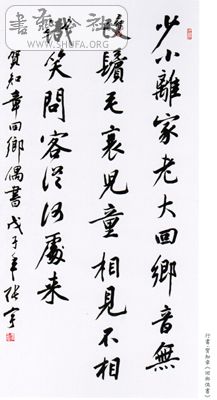 少小離家老大回鄉音無
改鬢毛衰兒童相見不相
識笑問客從何處来
賀知章回鄉偶書戊子年張宇
行書·賀知章《回鄉偶書》
書法
WWW.SHUFA.ORG